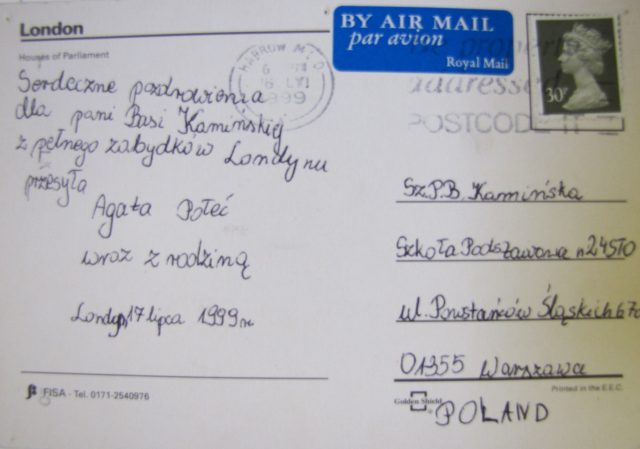 London
Houses of Parliament
BY AIR MAIL
par avion
Royal Mail
30P
HARROW M
1999
addressed
POSTCODE IT
Serdeczne pozdrowienia
dla pani Basi Kamińskiej
z pełnego zabydków Londynu
przesyła
Agata Połeć
wraz z rodziną
Londyn, 17 lipca 1999r.
Sz.P.B. Kamińska
Szkoła Podstawowa
ul. Powstańców Śląskich 67a
01355 Warszawa
POLAND
FISA - Tel. 0171-2540976
Golden Shield
Printed in the E.E.C.